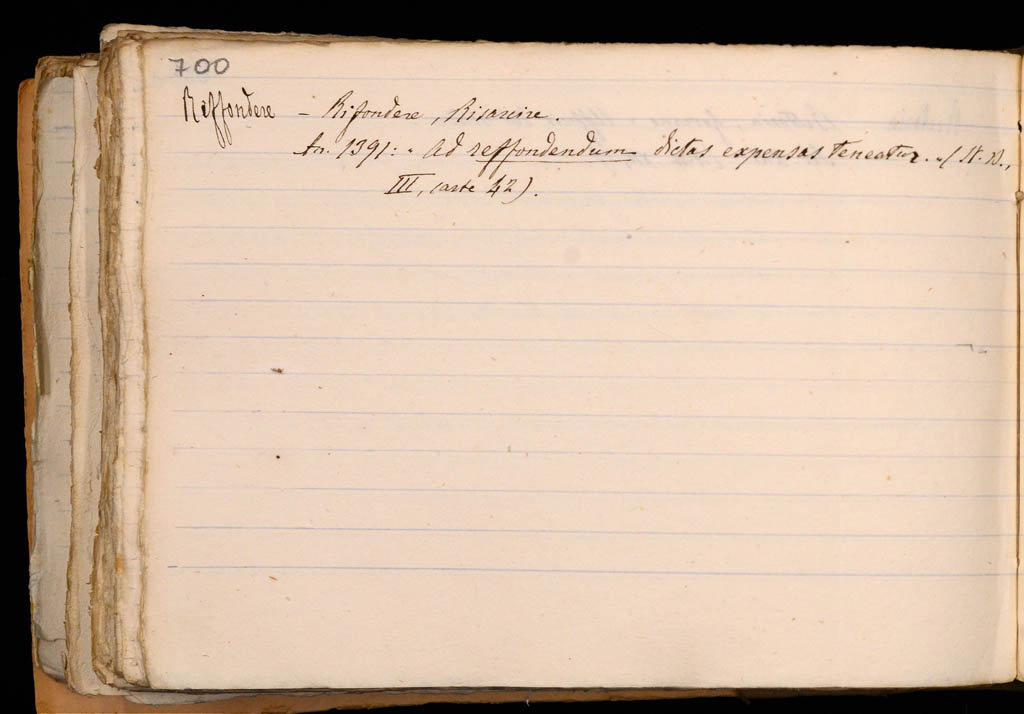 700
Reffondere – Rifondere, Risarcire.
An. 1391: " Ad reffondendum dictas expensas teneatur. " (St. N.,
III, carte 42).